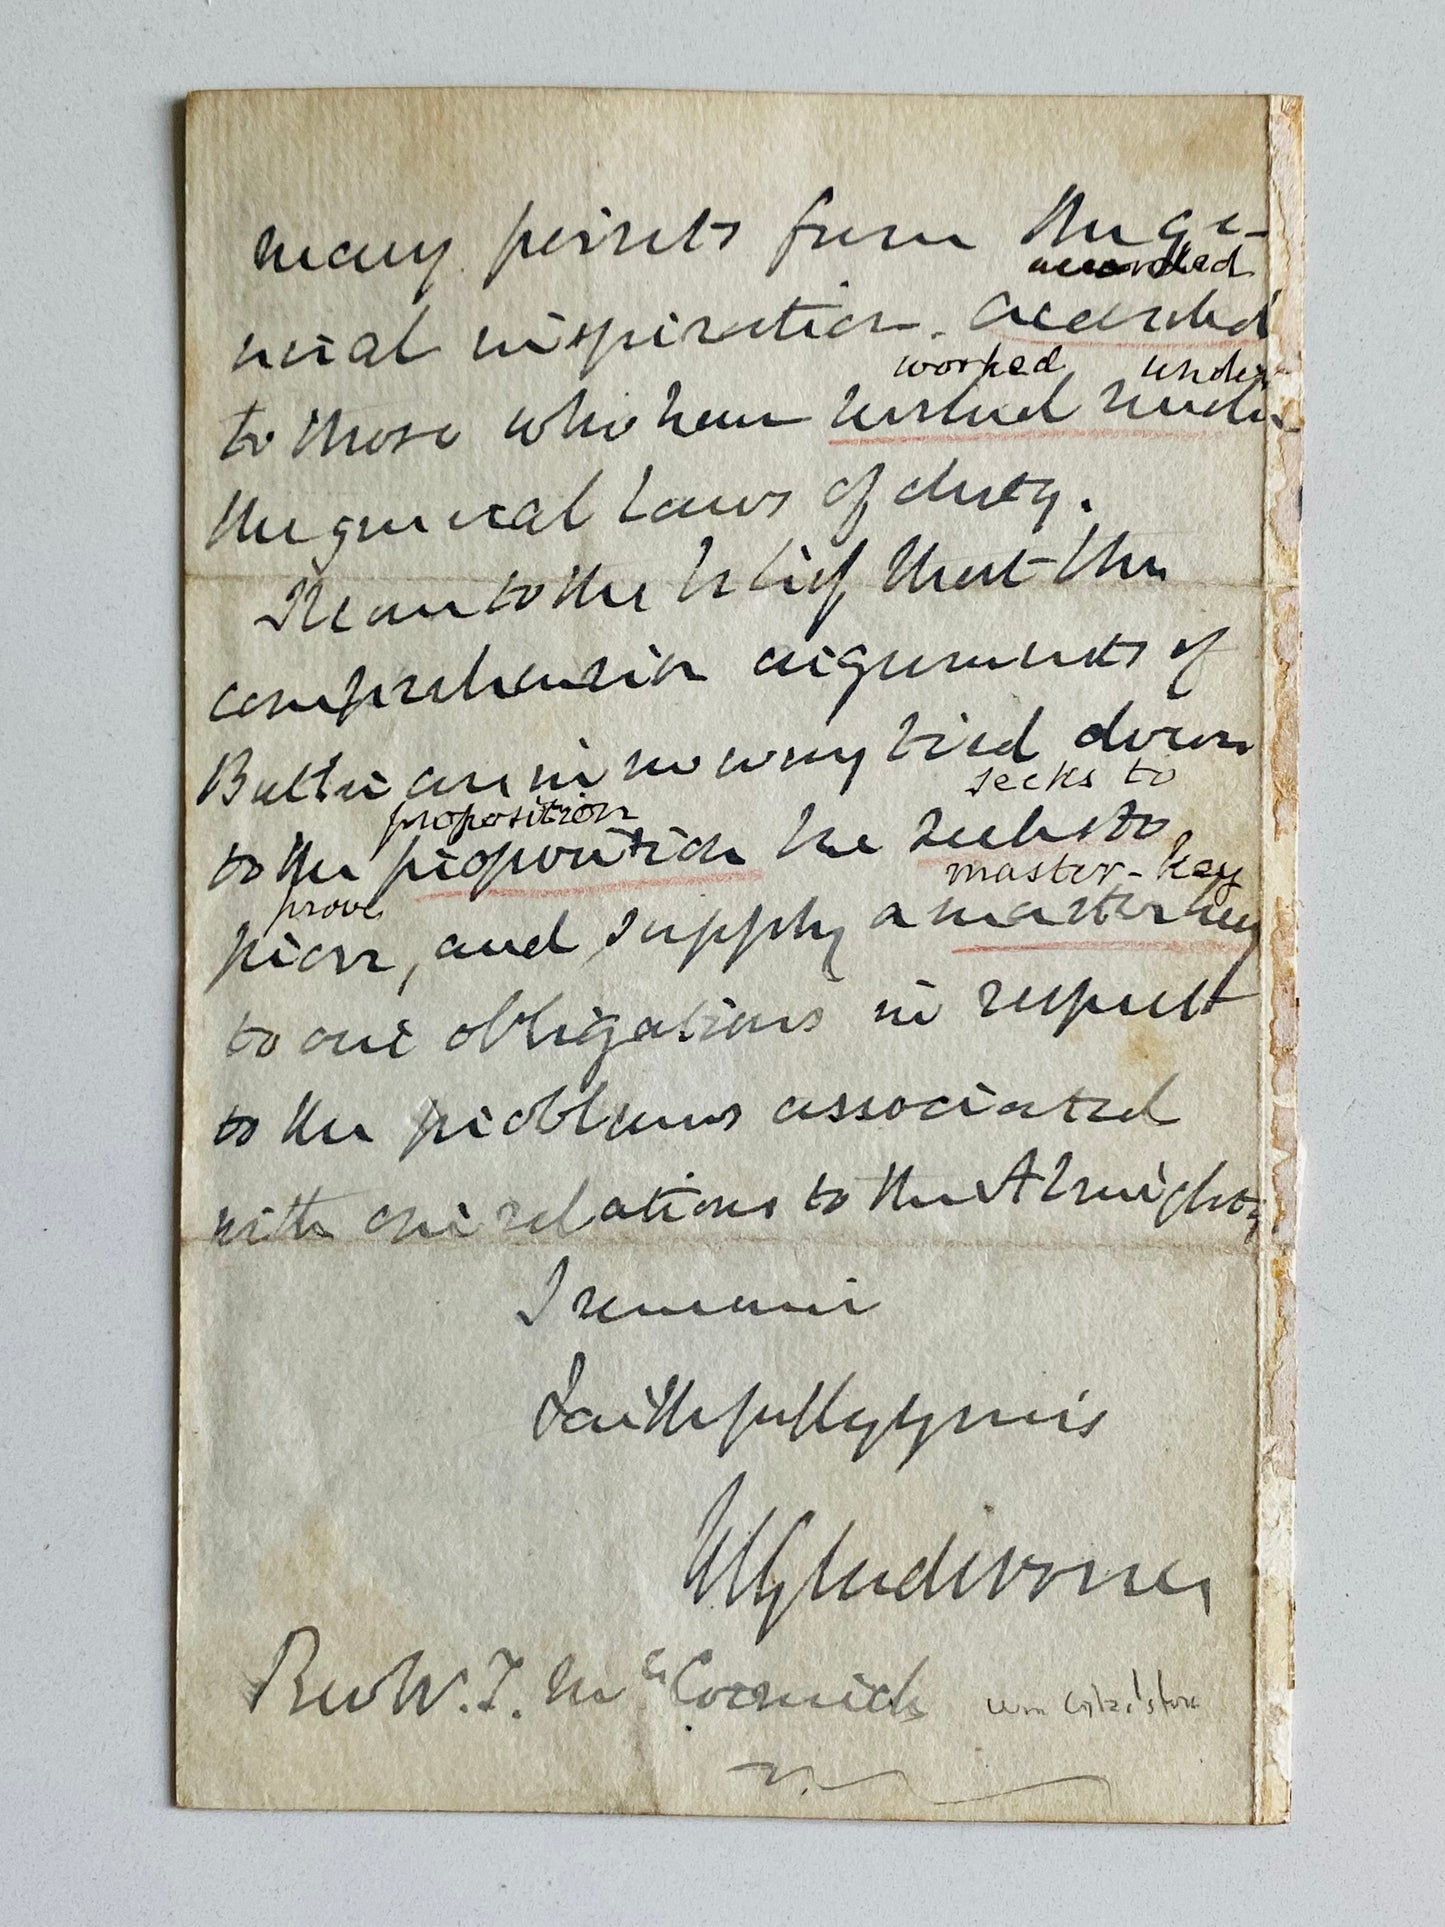 many points from the ge-
accorded
neral inspiration accorded
worked under
to those who have worked under
the general laws of duty.
I lean to the belief that the
comprehensive arguments of
Butler are in no way tied down
seeks to
proposition
to the proposition he seeks to
master-key
prove
prove, and supply a master key
to our obligations in respect
to the problems associated
with our relations to the Almighty
I remain
Faithfully yours
WGladstone
Rev W. T. McCormick
Wm Gladstone